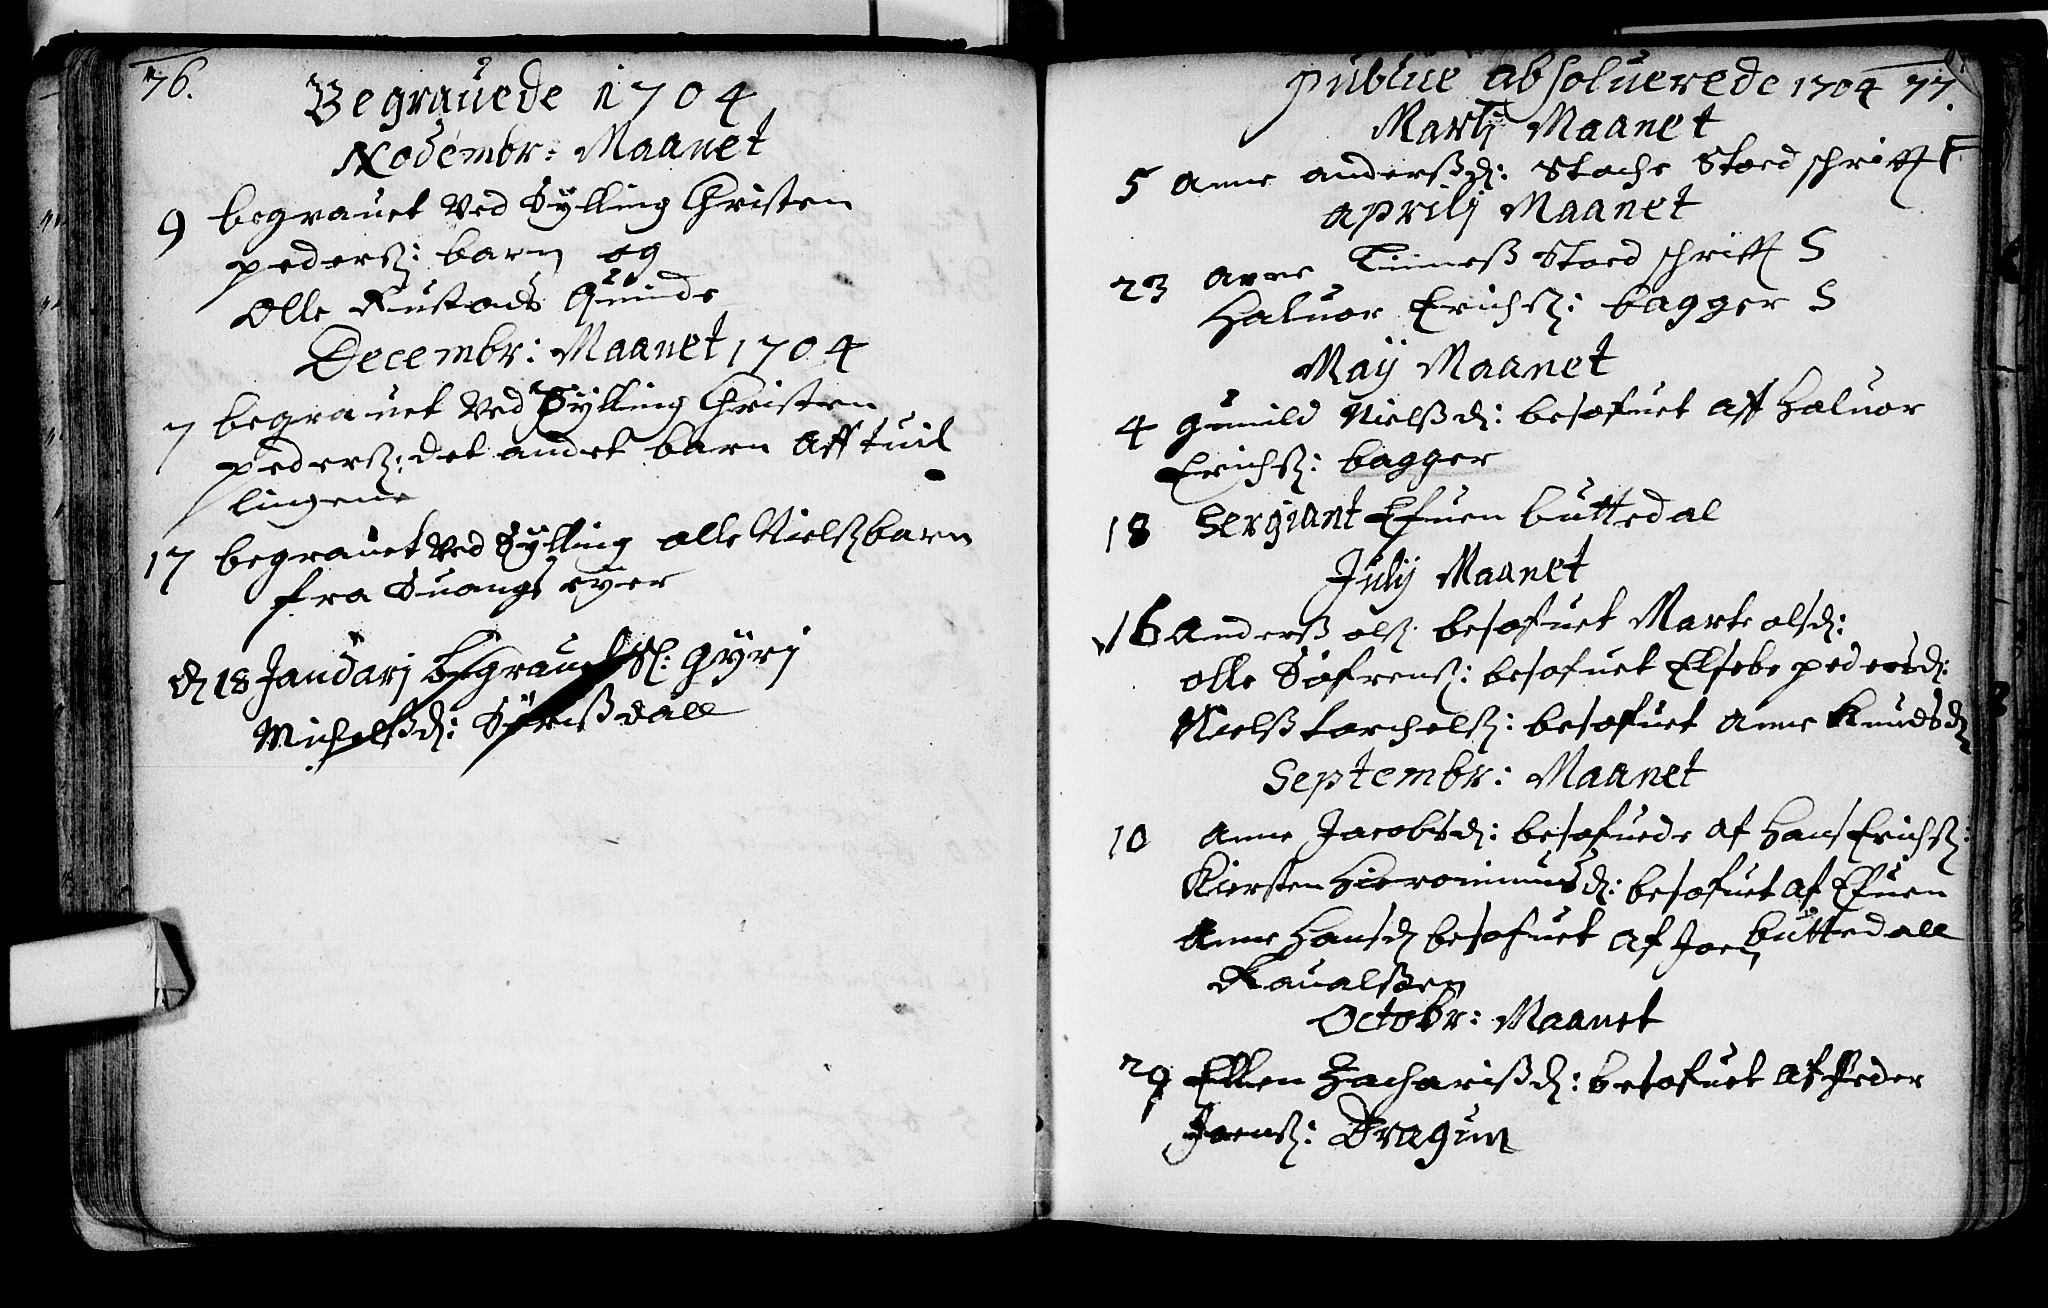 76.
Begrauede 1704
Novembr: Maanet
9 begrauet Ved Sylling Christen
pederß: barn og
Olle Rustads Quinde
Decembr: Maanet 1704
7 begrauet Ved Sylling Christen
pederß: det andet barn aff tuil
lingene
17 begrauet Ved Sylling olle Nielß barn
fra Suangs eyer
d 18 Januarj Begrauet Sl: Gyrj
Michelßd:
publice absoluerede 1704 77.
Martj Maanet
5 Anne anderßd: Stoed schrifft F
aprilj Maanet
23 Anne Stoed schrifft S
Haluor Erichß: bagger S
Maij Maanet
4 gunild Nielßd: besofuet aff Haluor
Erichß: bagger
18 Sergiant Efuen buttedal
Julij Maanet
16 Anderß olß: besofuet Marte olsd:
olle Sofrenß: besofuet Elsebe pedersd:
Nielß torchelß: besofuet Anne Knudsd
Septembr: Maanet
10 Anne Jacobsd: besofuede af Hans Erichß:
Kiersten Hieronimusd: besofuet af Efuen
Anne Hansd besofuet af Joen buttedall
Raualßen
Octobr: Maanet
29 Ellen Zacharißd: besofuet af Peder
Joenß: Dragun